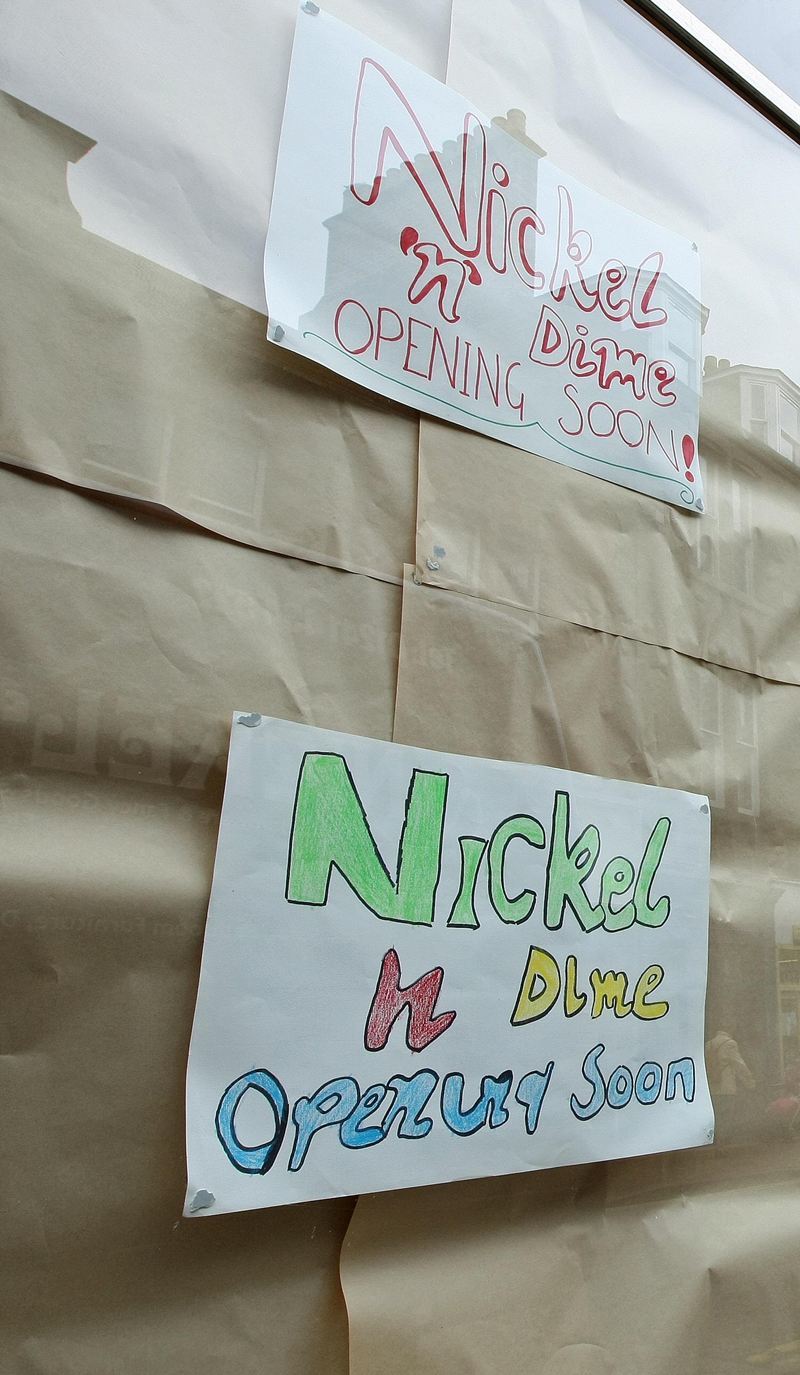 Nickel
'n' Dime
OPENING SOON!
Nickel
n Dime
Opening Soon